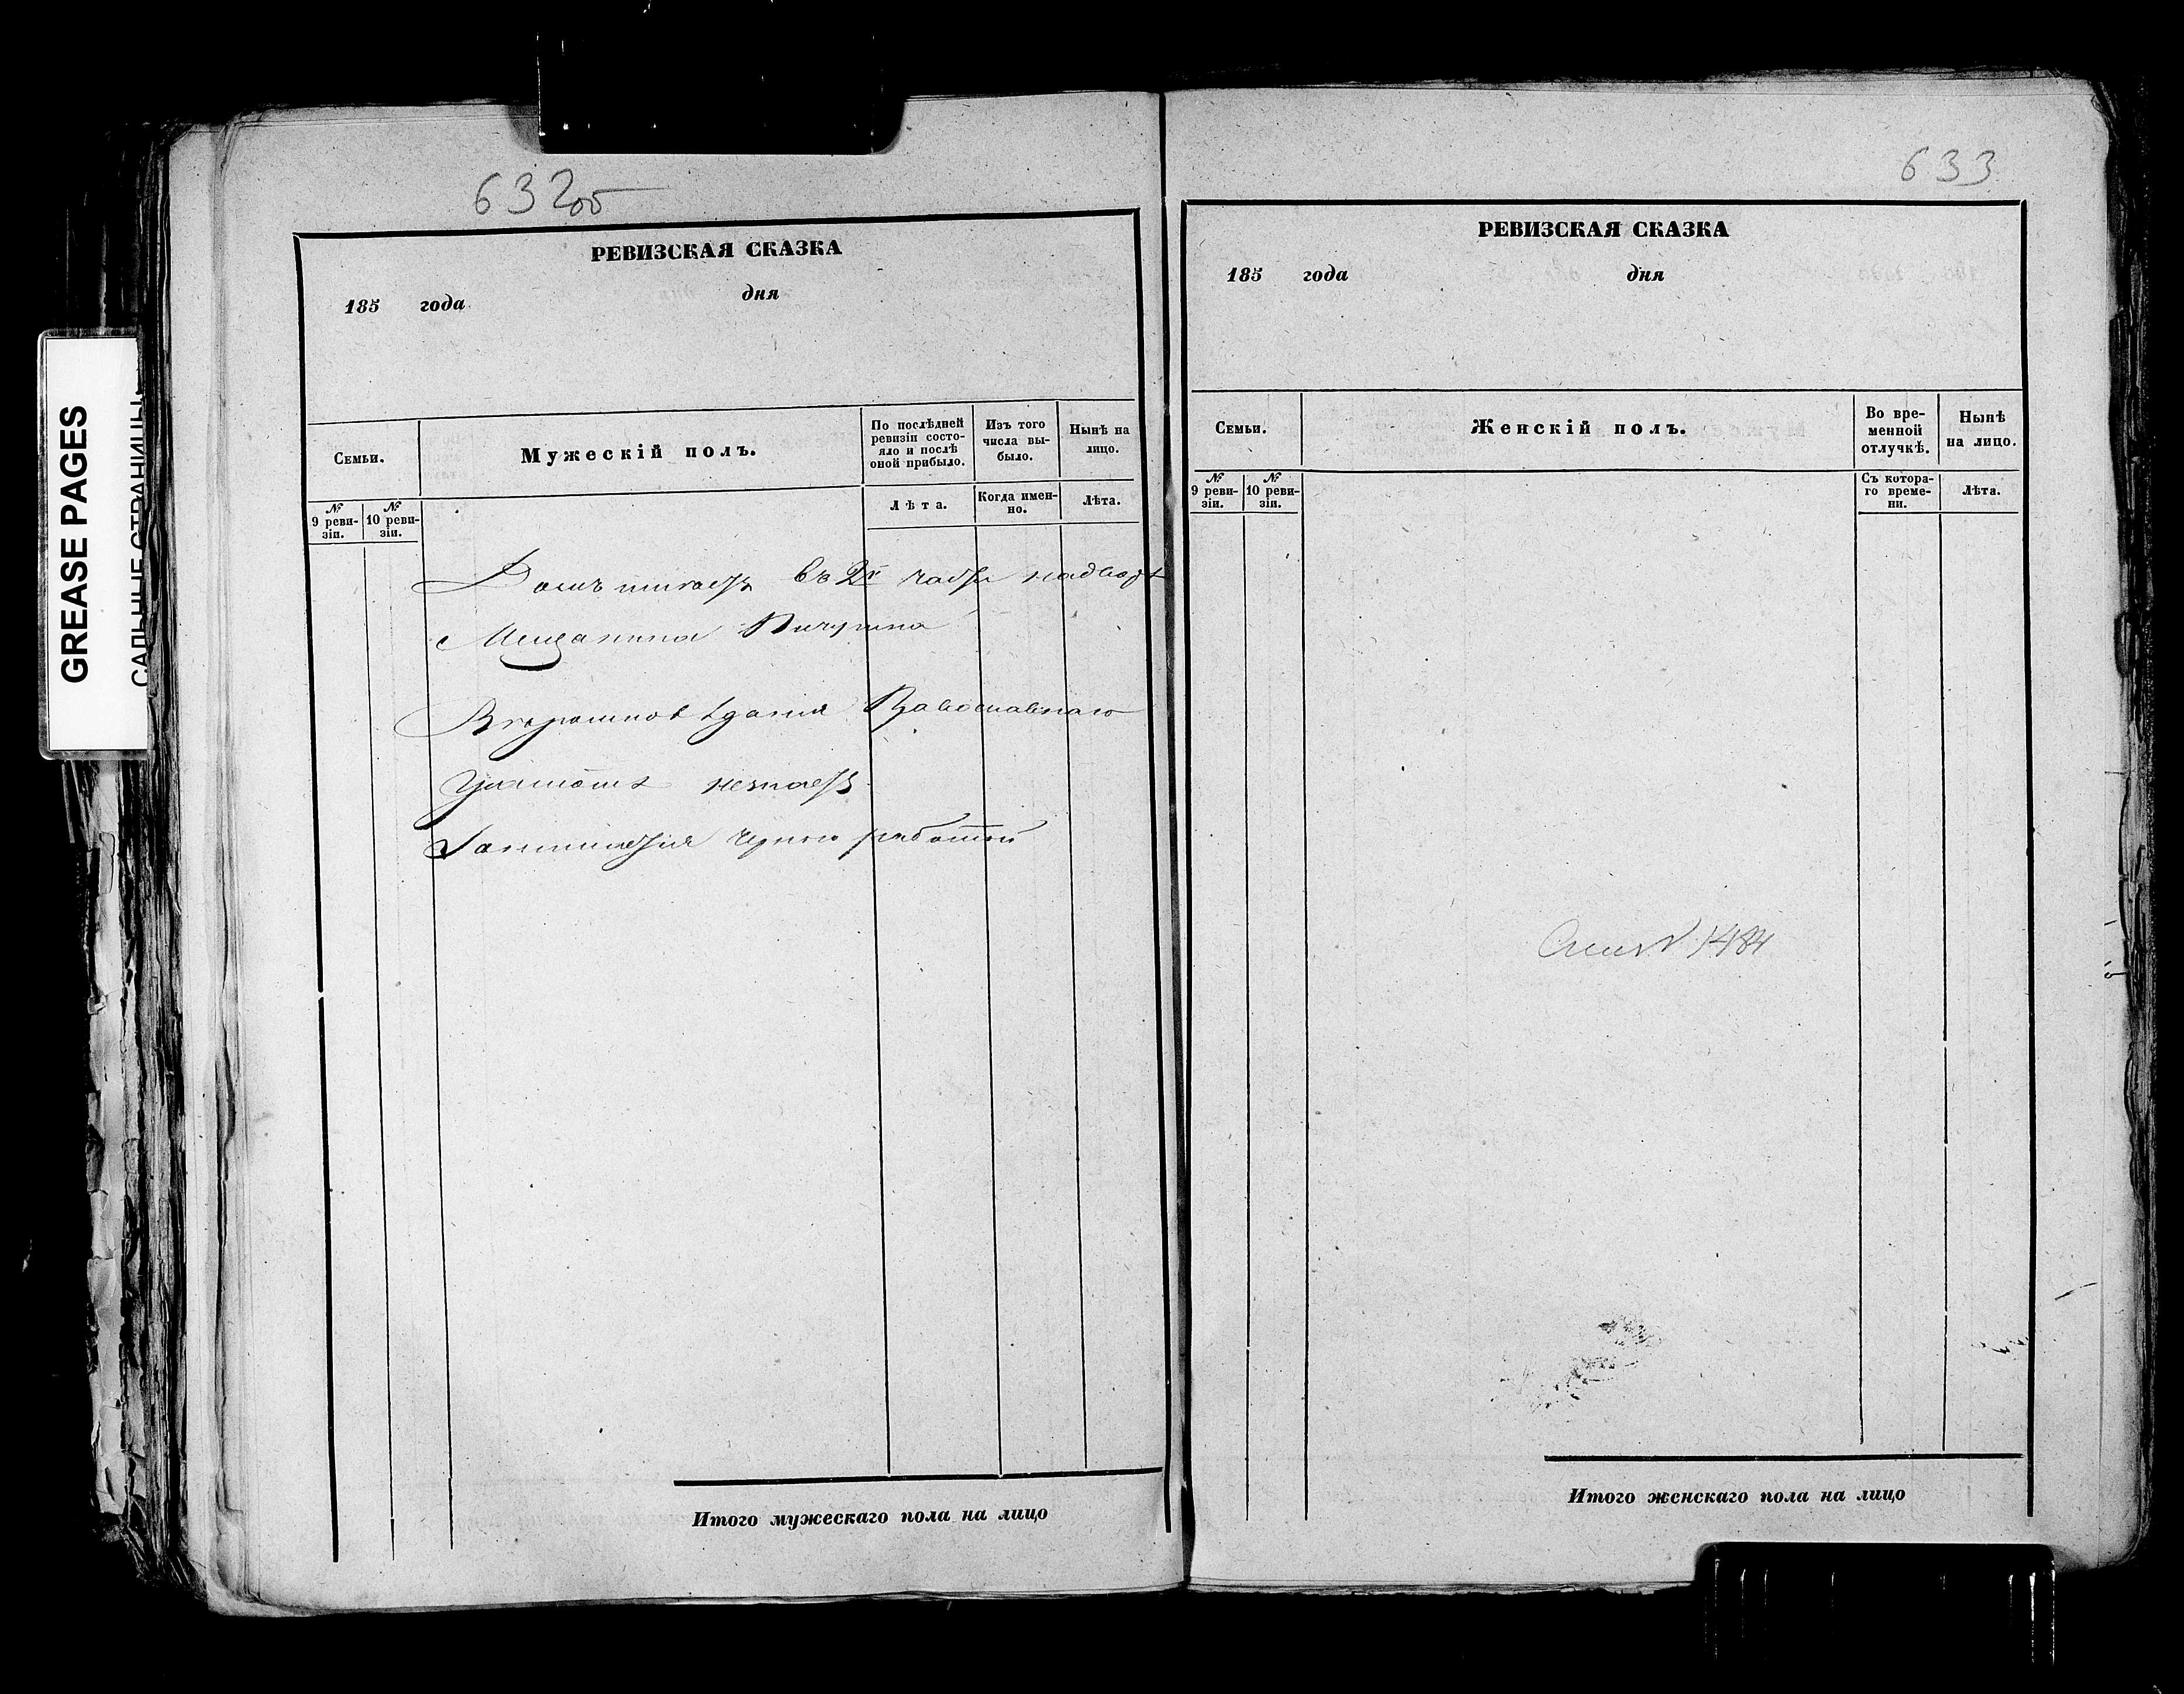 GREASE PAGES
САЛЬНЫЕ СТРАНИЦЫ
632об
РЕВИЗСКАЯ СКАЗКА
185 года дня
Семьи.
Мужескій полъ.
По послѣдней ревизіи состояло и послѣ оной прибыло.
Изъ того числа выбыло.
Нынѣ на лицо.
№ 9 ревизіи.
№ 10 ревизіи.
Лѣта.
Когда именно.
Лѣта.
въ 2й части
Мещанина Пичугина
Вѣроисповѣданія Православнаго
Грамотѣ незнаетъ
Занимается черною работой
Итого мужескаго пола на лицо
633
РЕВИЗСКАЯ СКАЗКА
185 года дня
Семьи.
Женскій полъ.
Во временной отлучкѣ.
Нынѣ на лицо.
№ 9 ревизіи.
№ 10 ревизіи.
Съ котораго времени.
Лѣта.
№ 1484
Итого женскаго пола на лицо